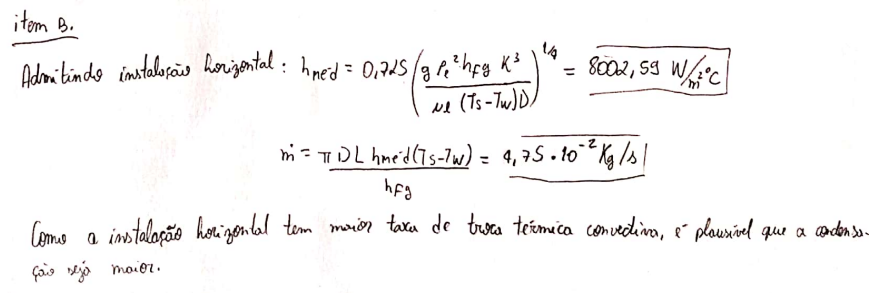 item B.
Admitindo instalação horizontal: hméd = 0,725 (g ρℓ² hfg K³ / μℓ (Ts-Tw)D)^1/4 = 8002,59 W/m²°C
ṁ = π D L hméd (Ts-Tw) / hfg = 4,75 · 10⁻² Kg/s
Como a instalação horizontal tem maior taxa de troca térmica convectiva, é plausível que a condensa-
ção seja maior.